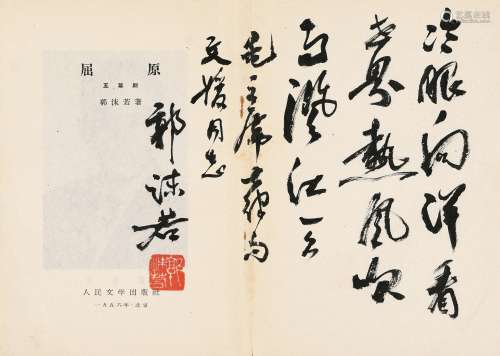 冷眼向洋看
世界熱風吹
雨灑江天
毛主席
文媛同志
郭沫若
郭沫若
屈原
五幕劇
郭沫若著
人民文学出版社
一九五六年·北京